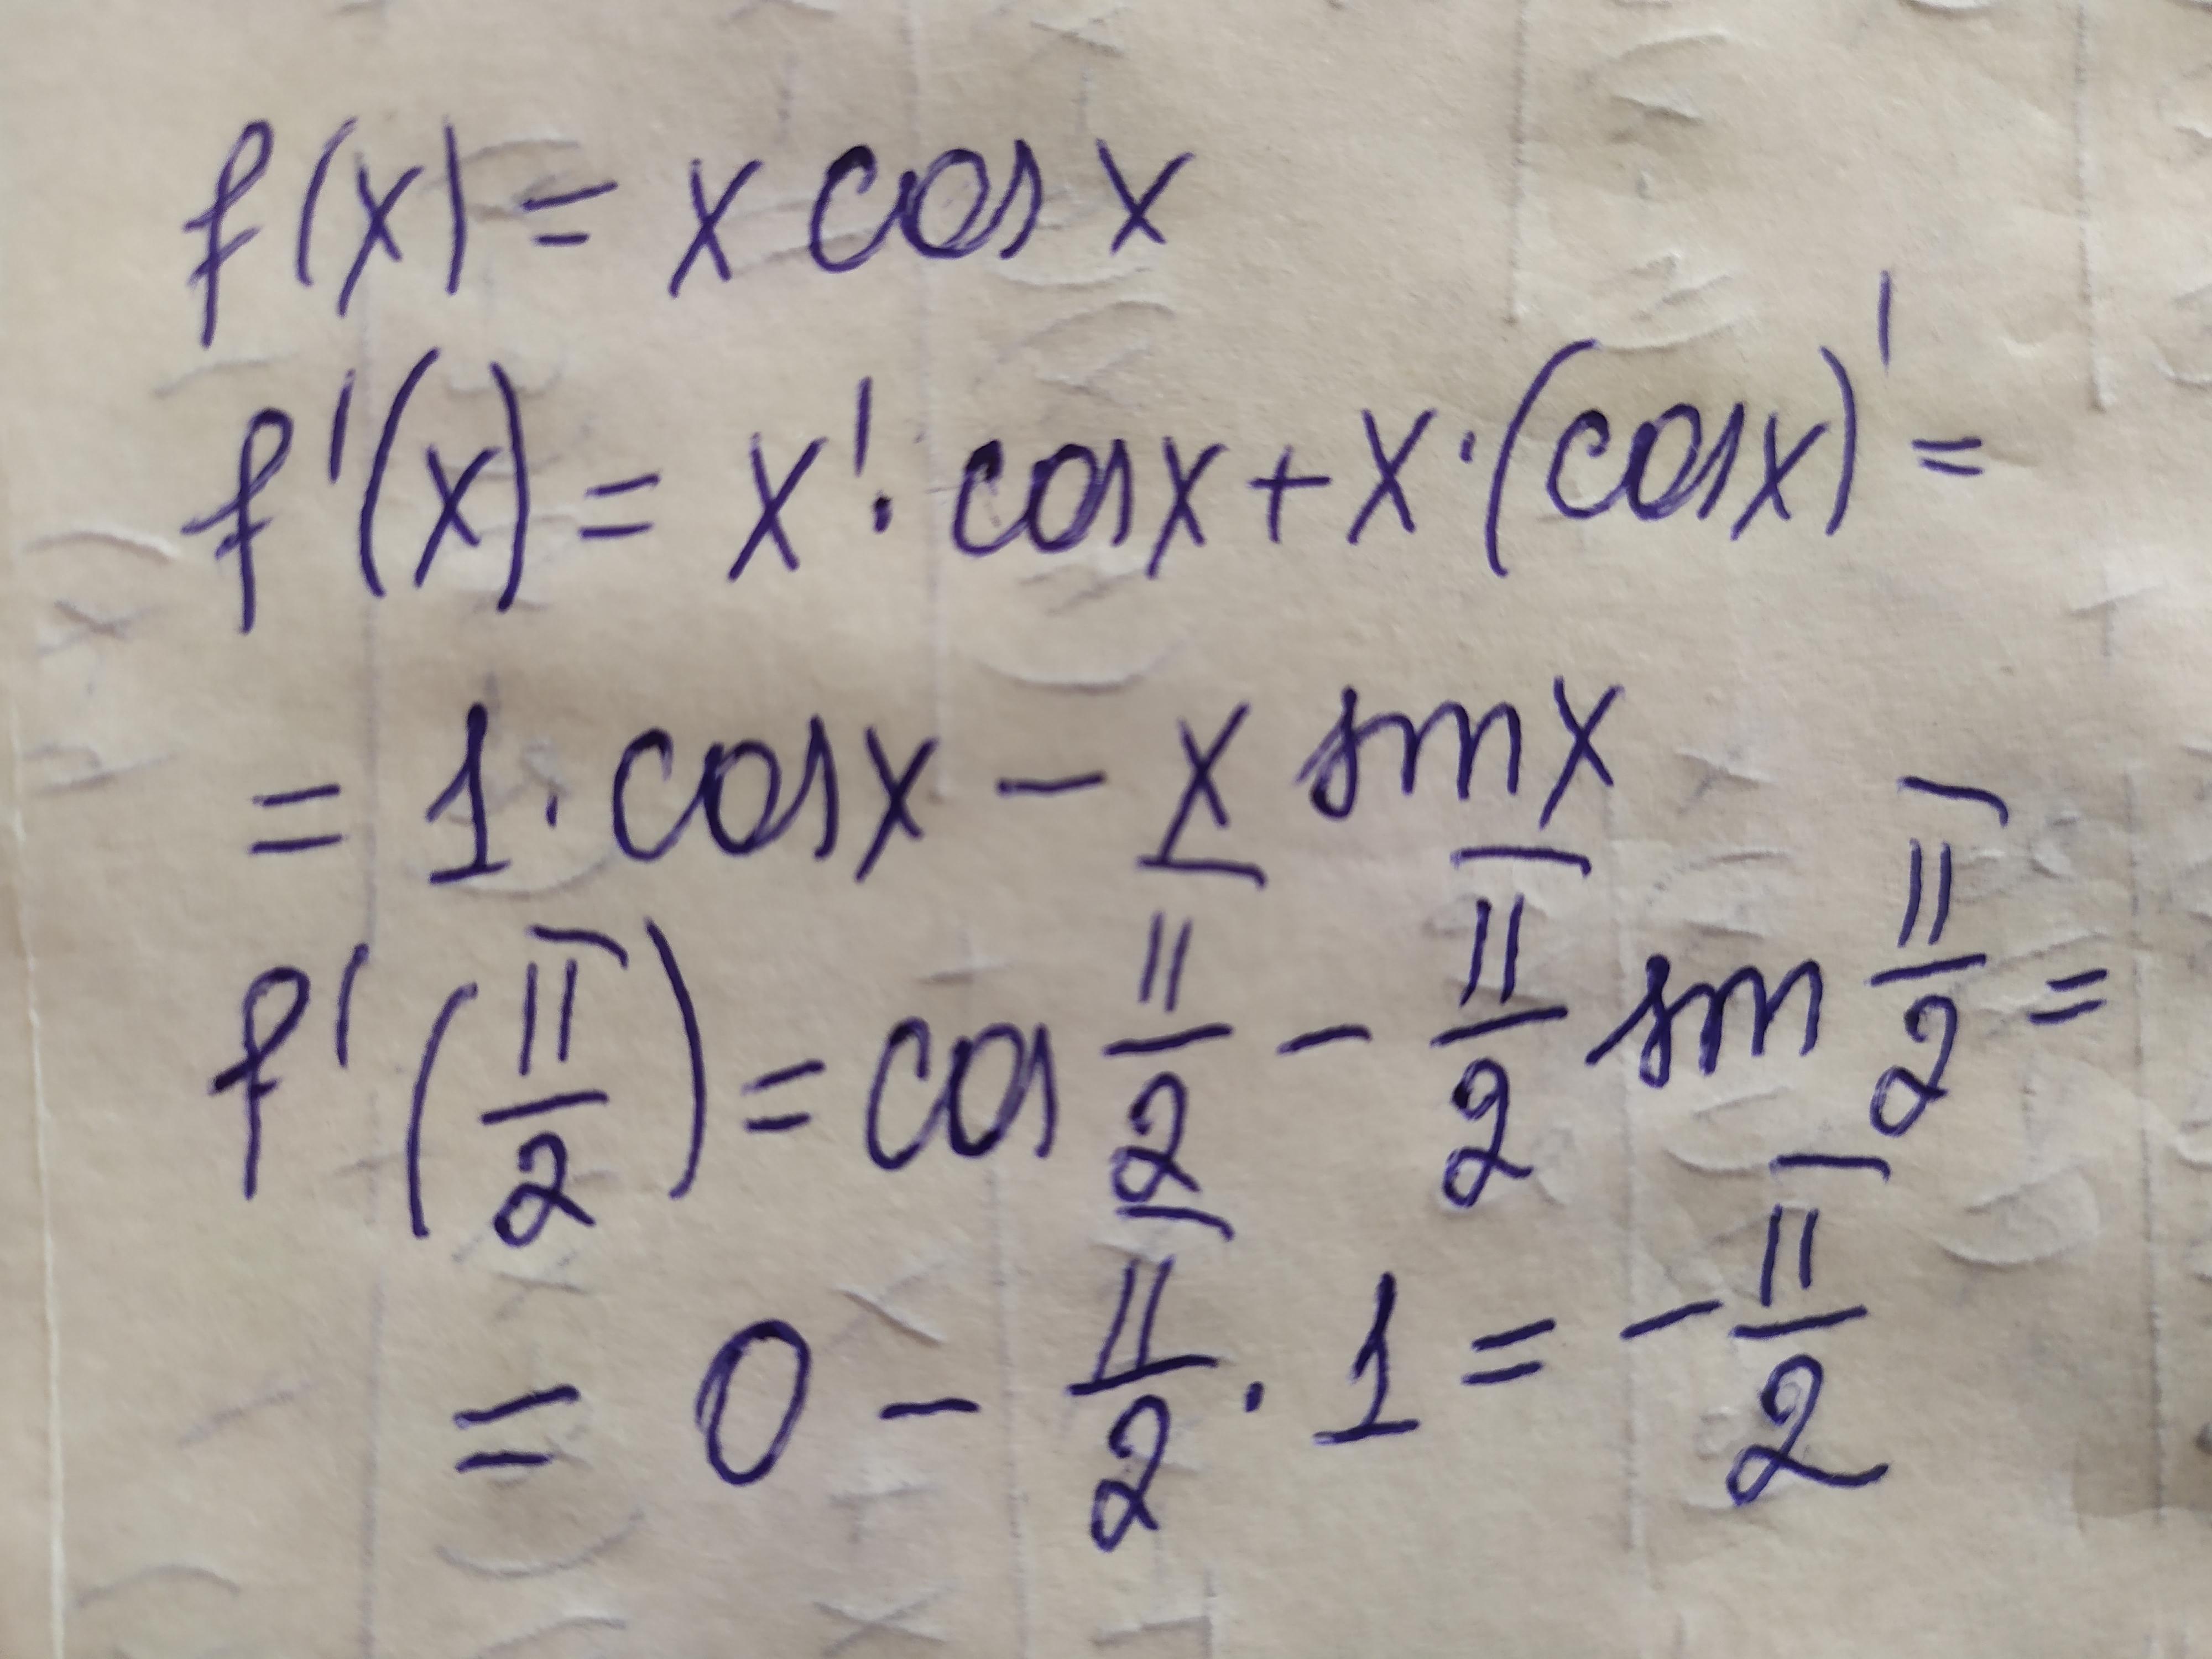 f(x) = x cos x
f'(x) = x' · cosx + x · (cosx)' =
= 1 · cosx - x sinx
f'(π/2) = cos π/2 - π/2 sin π/2 =
= 0 - π/2 · 1 = - π/2